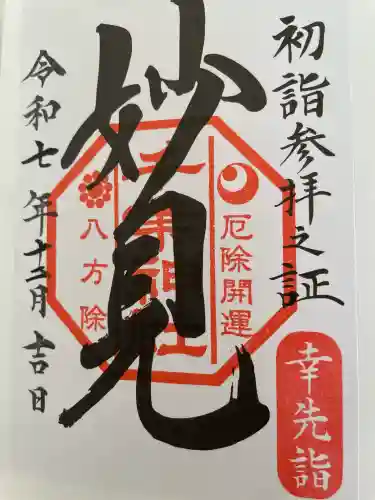 初詣参拝之証
幸先詣
厄除開運
妙見
八方除
令和七年十二月吉日